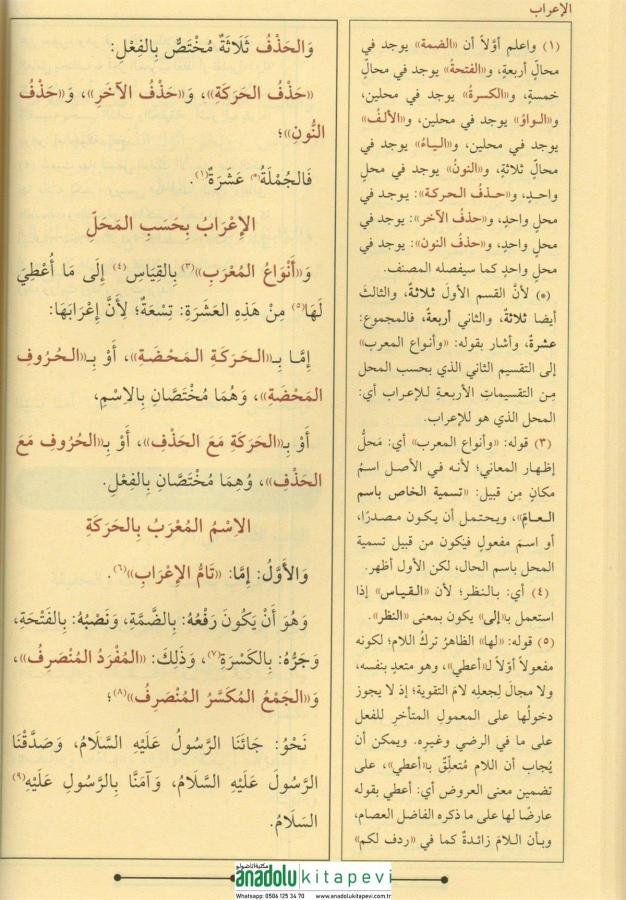 الإعراب
وَالحَذْفُ ثَلَاثَةٌ مُخْتَصٌّ بِالفِعْلِ:
«حَذْفُ الحَرَكَةِ»، وَ«حَذْفُ الآخَرِ»، وَ«حَذْفُ
النُّونِ»؛
فَالجُمْلَةُ(*) عَشَرَةٌ(١).
الإِعْرَابُ بِحَسَبِ المَحَلِّ
وَ«أَنْوَاعُ المُعْرَبِ»(٣) بِالقِيَاسِ(٤) إِلَى مَا أُعْطِيَ
لَهَا(٥) مِنْ هَذِهِ العَشَرَةِ: تِسْعَةٌ؛ لِأَنَّ إِعْرَابَهَا:
إِمَّا بِـ«الحَرَكَةِ المَحْضَةِ»، أَوْ بِـ«الحُرُوفِ
المَحْضَةِ»، وَهُمَا مُخْتَصَّانِ بِالِاسْمِ،
أَوْ بِـ«الحَرَكَةِ مَعَ الحَذْفِ»، أَوْ بِـ«الحُرُوفِ مَعَ
الحَذْفِ»، وُهِمَا مُخْتَصَّانِ بِالفِعْلِ.
الِاسْمُ المُعْرَبُ بِالحَرَكَةِ
وَالأَوَّلُ: إِمَّا: «تَامُّ الإِعْرَابِ»(٦).
وَهُوَ أَنْ يَكُونَ رَفْعُهُ: بِالضَّمَّةِ، وَنَصْبُهُ: بِالفَتْحَةِ،
وَجَرُّهُ: بِالكَسْرَةِ(٧)، وَذَلِكَ: «المُفْرَدُ المُنْصَرِفُ»،
وَ«الجَمْعُ المُكَسَّرُ المُنْصَرِفُ»(٨)؛
نَحْوُ: جَائَنَا الرَّسُولُ عَلَيْهِ السَّلَامُ، وَصَدَّقْنَا
الرَّسُولَ عَلَيْهِ السَّلَامُ، وَآمَنَّا بِالرَّسُولِ عَلَيْهِ(٩)
السَّلَامُ.
(١) واعلم أوّلاً أن «الضمة» يوجد في
محالّ أربعةٍ، و«الفتحةُ» يوجد في محالّ
خمسةٍ، و«الكسرةُ» يوجد في محلين،
و«الواوُ» يوجد في محلين، و«الألفُ»
يوجد في محلين، و«الياءُ» يوجد في
محالّ ثلاثةٍ، و«النونُ» يوجد في محلٍ
واحدٍ، و«حذفُ الحركة»: يوجد في
محلٍ واحدٍ، و«حذفُ الآخر»: يوجد في
محلٍ واحدٍ، و«حذفُ النون»: يوجد في
محلٍ واحدٍ كما سيفصله المصنف.
(*) لأنّ القسم الأولَ ثلاثةٌ، والثالثَ
أيضا ثلاثةٌ، والثاني أربعةٌ، فالمجموع:
عشرةٌ، وأشار بقوله: «وأنواع المعرب»
إلى التقسيم الثاني الذي بحسب المحل
مِن التقسيماتِ الأربعةِ للإعراب أي:
المحل الذي هو للإعراب.
(٣) قوله: «وأنواع المعرب» أي: مَحلُّ
إظهار المعاني؛ لأنه في الأصل اسمُ
مكانٍ مِن قبيل: «تسمية الخاص باسم
العامّ»، ويحتمل أن يكون مصدرًا،
أو اسمَ مفعولٍ فيكون من قبيل تسمية
المحل باسم الحال، لكن الأول أظهر.
(٤) أي: بالنظر؛ لأن «القياس» إذا
استعمل بـ«إلى» يكون بمعنى «النظر».
(٥) قوله: «لها» الظاهرُ تركُ اللام؛ لكونه
مفعولاً أوّلاً لـ«أعطي»، وهو متعدٍ بنفسه،
ولا مجالَ لجعلِه لامَ التقوية؛ إذ لا يجوز
دخولُها على المعمولِ المتأخرِ للفعل
على ما في الرضي وغيرِه. ويمكن أن
يُجاب أن اللام مُتعلِّقٌ بـ«أعطي»، على
تضمين معنى العروض أي: أعطي بقوله
عارضًا لها على ما ذكره الفاضل العصام،
وبأن اللامَ زائدةٌ كما في «ردف لكم»
مكتبة اناضولو
anadolu kitapevi
Whatsapp: 0506 125 34 70 www.anadolukitapevi.com.tr